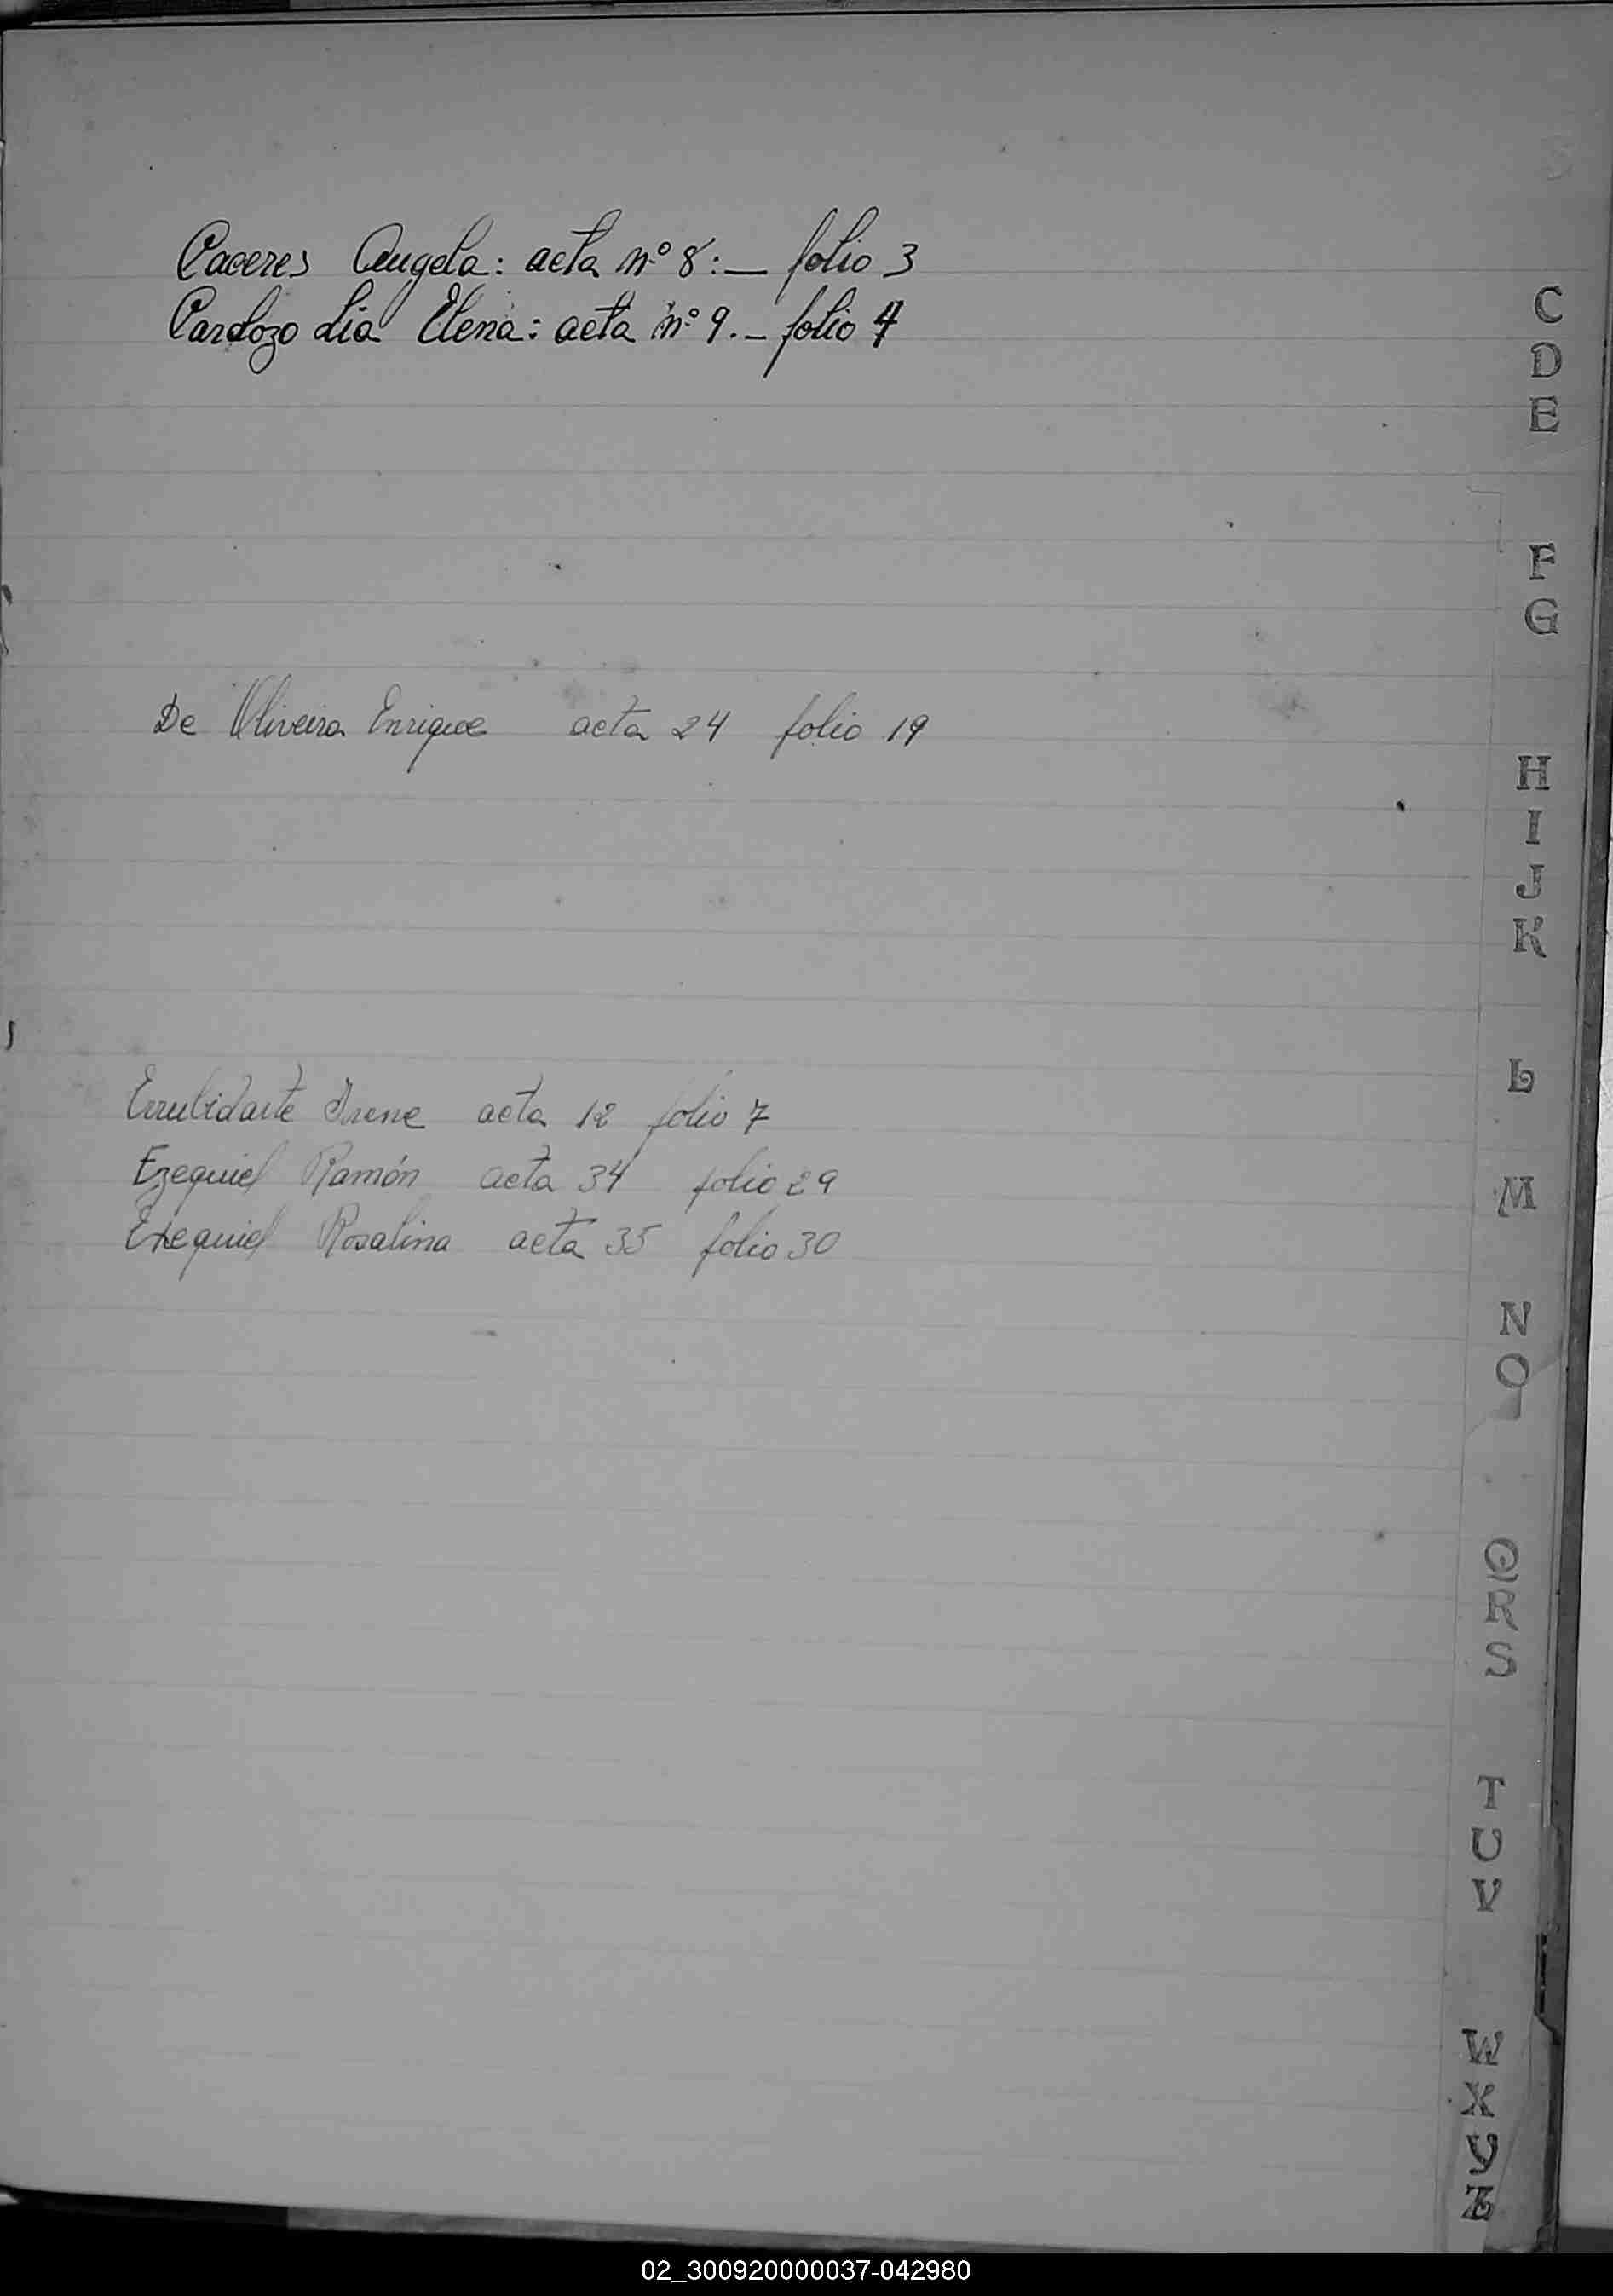 Caceres Angela: acta nº 8:— folio 3
Cardozo Lia Elena: acta nº 9.— folio 4
De Oliveira Enrique acta 24 folio 19
Errubidarte Irene acta 12 folio 7
Ezequiel Ramón acta 34 folio 29
Exequiel Rosalina acta 35 folio 30
C
D
E
F
G
H
I
J
K
L
M
N
O
Q
R
S
T
U
V
W
X
Y
Z
02_300920000037-042980